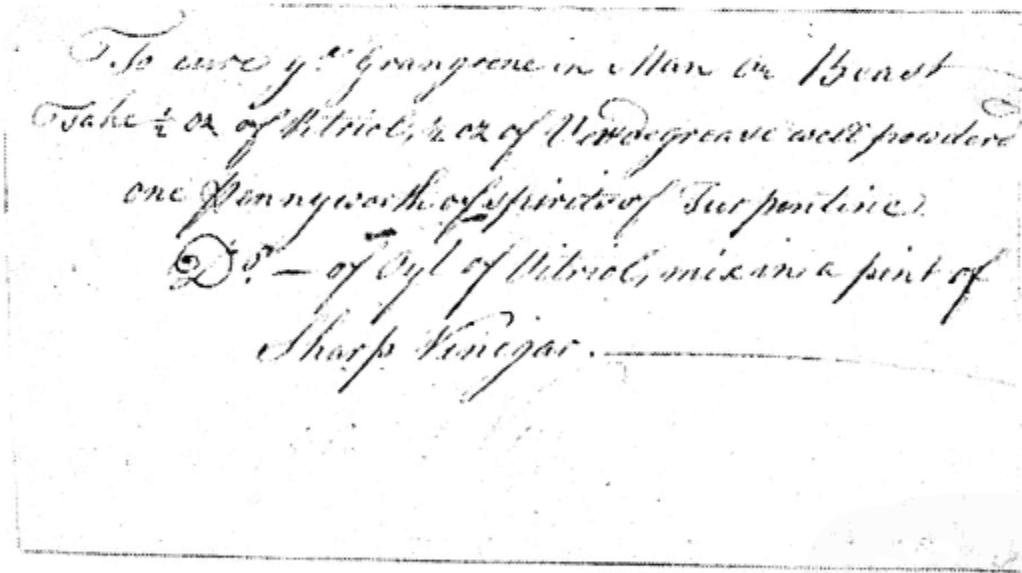 To cure ye Grangreene in Man or Beast
Take ½ oz of Vitriol, ½ oz of Verdegrease well powderd
one Pennyworth of spirits of Turpentine
Do — of Oyl of Vitriol, mix in a pint of
Sharp Vinigar.